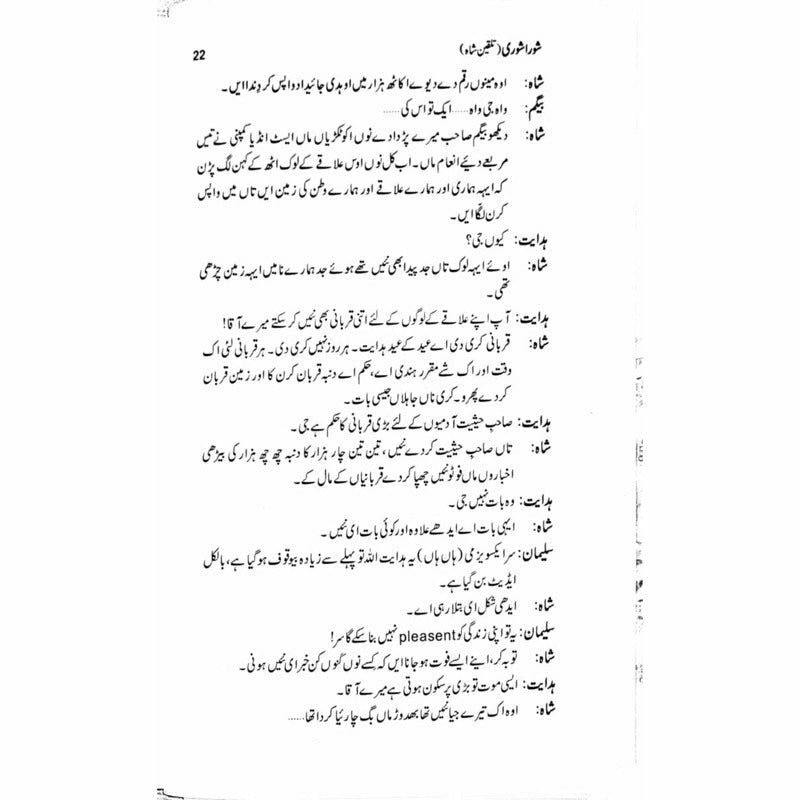 شورا شوری (تلقین شاہ) 22
شاہ: اوہ مینوں رقم دے دیوے اکاٹھ ہزار میں اوہدی جائیداد واپس کر دِندا ایں۔
بیگم: واہ جی واہ...... ایک تو اس کی ......
شاہ: دیکھو بیگم صاحب میرے پڑدادے نوں اکونکڑیاں ماں ایسٹ انڈیا کمپنی نے تیں
مربعے دیئے انعام ماں۔ اب کل نوں اوس علاقے کے لوک اٹھ کے کہن لگ پڑن
کہ ایہہ ہماری اور ہمارے علاقے اور ہمارے وطن کی زمین ایں تاں میں واپس
کرن لگا ایں۔
ہدایت: کیوں جی؟
شاہ: اوئے ایہہ لوک تاں جد پیدا بھی نئیں تھے ہوئے جد ہمارے نا میں ایہہ زمین چڑھی
تھی۔
ہدایت: آپ اپنے علاقے کے لوگوں کے لئے اتنی قربانی بھی نئیں کر سکتے میرے آقا!
شاہ: قربانی کری دی اے عید کے عید ہدایت۔ ہر روز نہیں کری دی۔ ہر قربانی لئی اک
وقت اور اک شے مقرر ہندی اے، حکم اے دنبہ قربان کرن کا اور زمین قربان
کردے پھرو۔ کری ناں جاہلاں جیسی بات۔
ہدایت: صاحب حیثیت آدمیوں کے لئے بڑی قربانی کا حکم ہے جی۔
شاہ: تاں صاحب حیثیت کردے نئیں، تین تین چار ہزار کا دنبہ چھ چھ ہزار کی بیڑھی
اخباروں ماں فوٹو نئیں چھپا کردے قربانیاں کے مال کے۔
ہدایت: وہ بات نہیں جی۔
شاہ: ایہی بات اے ایدھے علاوہ اور کوئی بات ای نئیں۔
سلیمان: سر ایکسویزمی (ہاں ہاں) یہ ہدایت اللہ تو پہلے سے زیادہ بیوقوف ہو گیا ہے، بالکل
ایڈیٹ بن گیا ہے۔
شاہ: ایدھی شکل ای بتلا رہی اے۔
سلیمان: یہ تو اپنی زندگی کو pleasent نہیں بنا سکے گا سر!
شاہ: توبہ کر، اپنے ایسے فوت ہو جانا ایں کہ کسے نوں کنوں کن خبر ای نئیں ہونی۔
ہدایت: ایسی موت تو بڑی پرسکون ہوتی ہے میرے آقا۔
شاہ: اوہ اک تیرے جیا نئیں تھا بھدوڑ ماں بگ چارئیا کردا تھا......